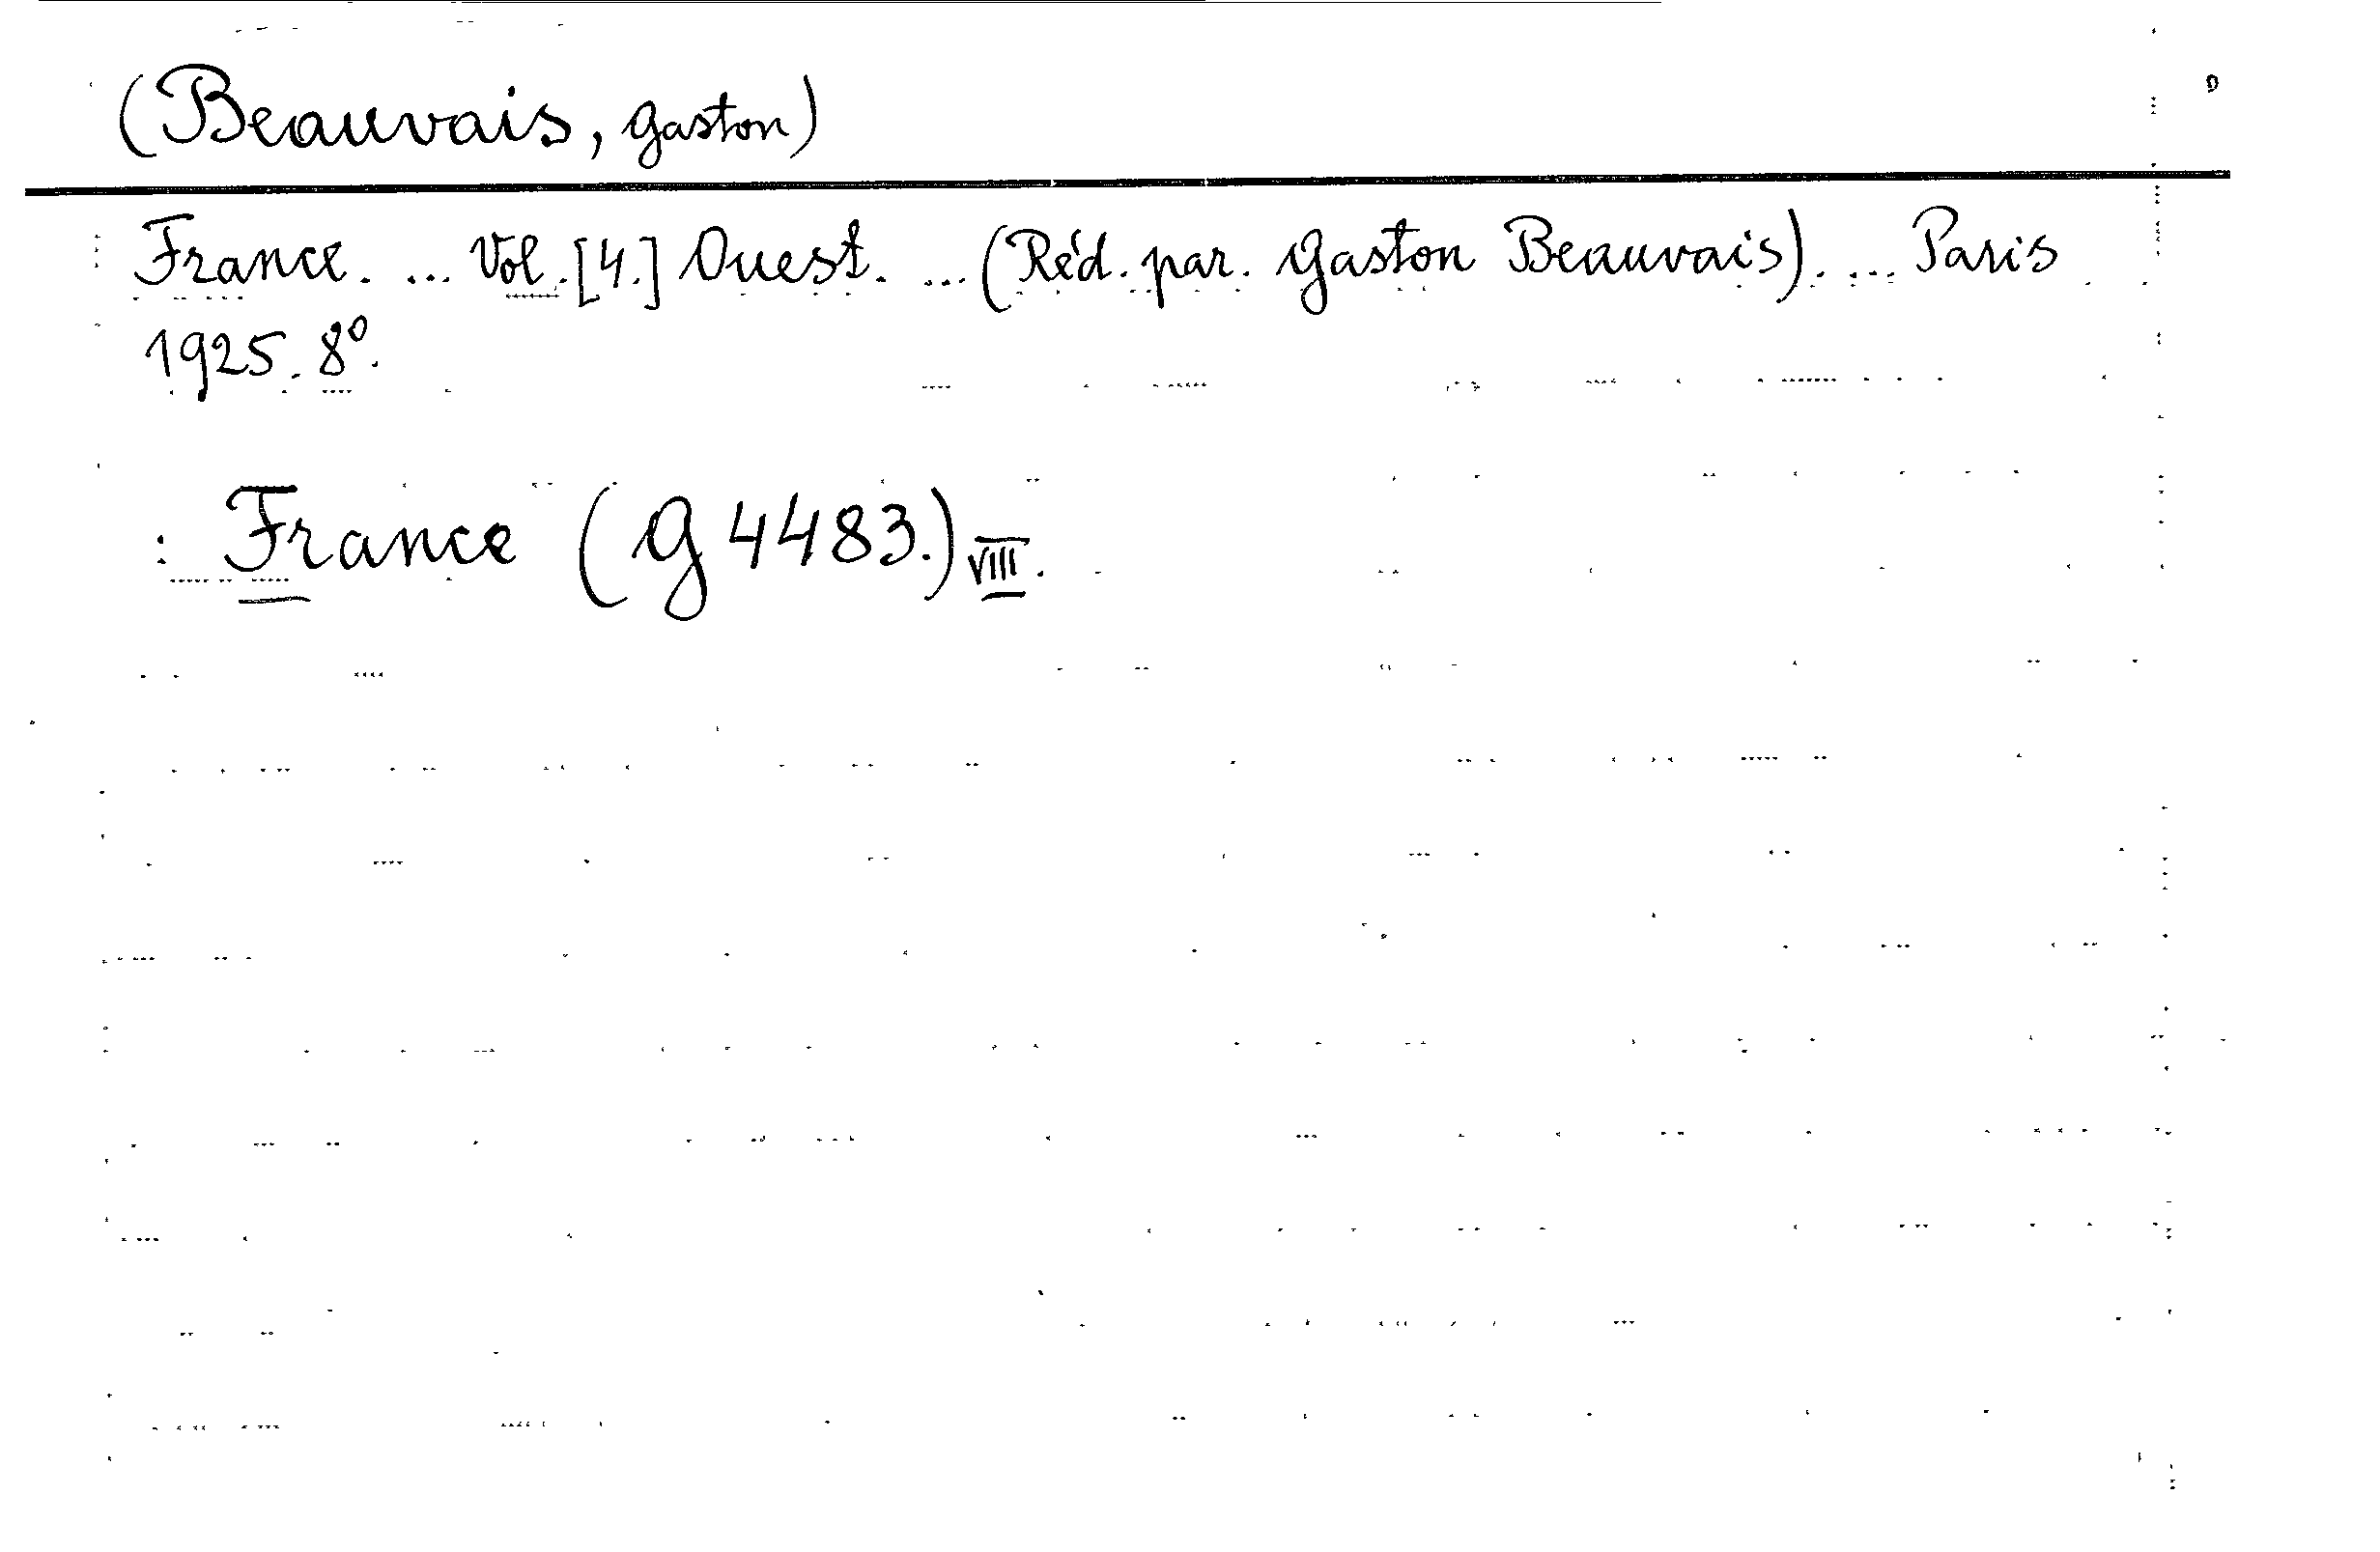 (Beauvais, Gaston)
France. ... Vol. [4.] Ouest. ... (Réd. par. Gaston Beauvais). ... Paris
1925. 8º.
: France (G 4483.) VIII.